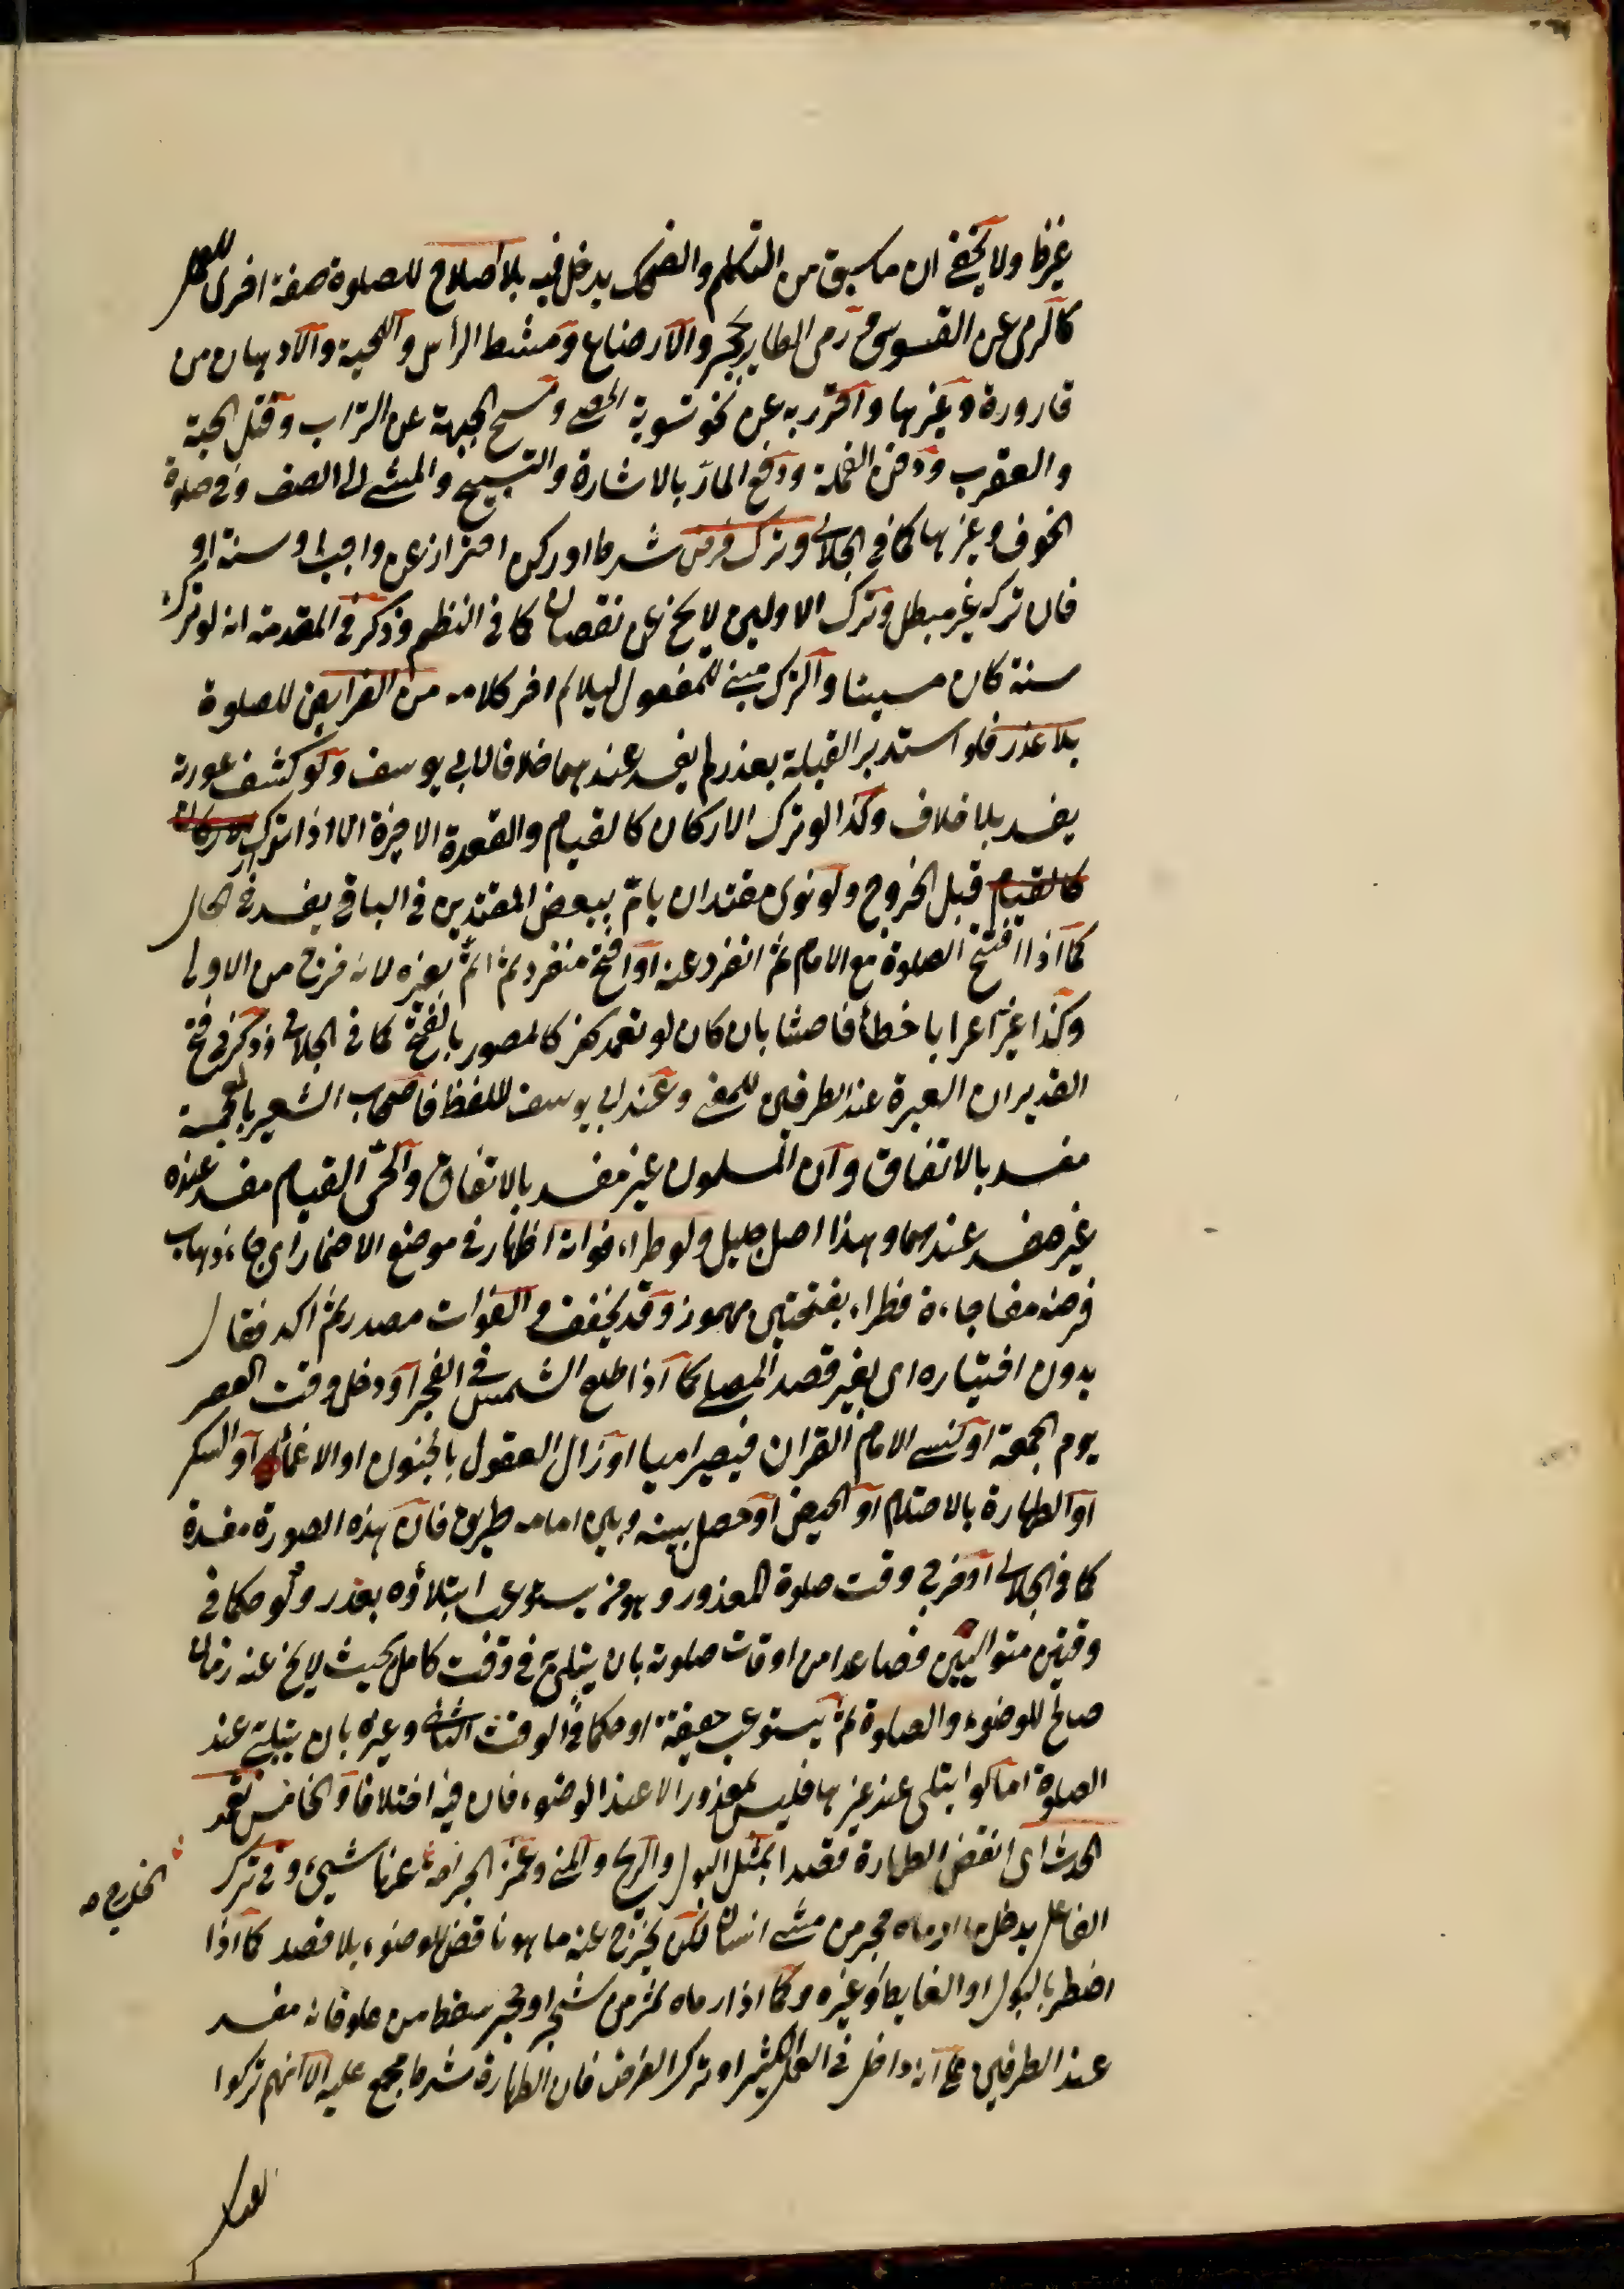 غيرها ولا يخفى ان ما سبق من التكلم والضحك يدخل فيه بلا اصلاح للصلوة صفة اخرى للعمل
كالرمى عن القوس ورمى الطاير بحجر والارضاع ومشط الرأس واللحية والادهان من
قارورة وغيرها واحترز به عن نحو تسوية الحصى ومسح الجبهة عن التراب وقتل الحية
والعقرب ودفن القملة ودفع المار بالاشارة والتسبيح والمشى الى الصف وفى صلوة
الخوف وغيرها كما فى الجلابى وترك فرض شرط او ركن احتراز عن واجب او سنة او
فان تركه غير مبطل وترك الاولين لا يخ عن نقصان كما فى النظم وذكر فى المقدمة انه لو ترك
سنة كان مسيئا والترك مبنى للمفعول ليلائم اخر كلامه من الفرايض للصلوة
بلا عذر فلو استدبر القبلة بعذر لم يفسد عندهما خلافا لابى يوسف ولو كشف عورته
يفسد بلا خلاف وكذا لو ترك الاركان كالقيام والقعدة الاخيرة الا اذا تدارك
كالقيام قبل الخروج ولو نوى مقتد ان يأم ببعض المقتدين فى الباقى يفسد فى الحال
كما اذا افتتح الصلوة مع الامام ثم انفرد عنه او افتتح منفرد ثم ائتم بغيره لانه خرج من الاولى
وكذا غير اعرابا خطأ فاحشا بان كان لو تعمد كفر كالمصور بالفتح كما فى الجلابى وذكر فى فتح
القدير ان العبرة عند الطرفين للمعنى وعند ابى يوسف للفظ فاصحاب الشعير بالمعجمة
مفسد بالاتفاق وان المسلمون غير مفسد بالاتفاق والحى القيام مفسد عنده
غير مفسد عندهما وهذا اصل جليل ولو طراء فواته اظهار فى موضع الاضمار اى جاء ذهاب
فرضه مفاجاءة فطراء بفتحتين مهموز وقد يخفف والفوات مصدر ثم اكد فقال
بدون اختياره اى بغير قصد المصلى كما اذا طلع الشمس فى الفجر او دخل وقت العصر
يوم الجمعة او نسى الامام القران فيصير اميا او زال العقول بالجنون او الاغماء او السكر
او الطهارة بالاحتلام او الحيض او حصل بينه وبين امامه طريق فان هذه الصورة مفسدة
كما فى الجلابى او خرج وقت صلوة المعذور وهو من يستوعب ابتلاؤه بعذر ولو حكما فى
وقتين متواليين فصاعدا من اوقات صلوته بان يبتلى فى وقت كامل بحيث لا يخ عنه زمان
صالح للوضوء والصلوة ثم يستوعب حقيقة او حكما فى الوقت الثانى وغيره بان يبتلى عند
الصلوة اما لو ابتلى عند غيرها فليس بمعذور الا عند الوضوء فان فيه اختلافا والخامس تعمد
الحدث اى انقض الطهارة قصدا بمثل البول والريح والمنى وغمز الجراحة عنها شيئ وفى ترك
الخارج صح
الفاعل يدخل ما رماه حجر من مشى انسان لكن يخرج عنه ما هو ناقض للوضوء بلا قصد كما اذا
اضطر بالبول او الغايط وغيره وكما اذا رماه ثمر من شجر او حجر سقط من علو فانه مفسد
عند الطرفين على انه داخل فى العمل الكثير او ترك الفرض فان الطهارة شرط مجمع عليه الا انهم تركوا